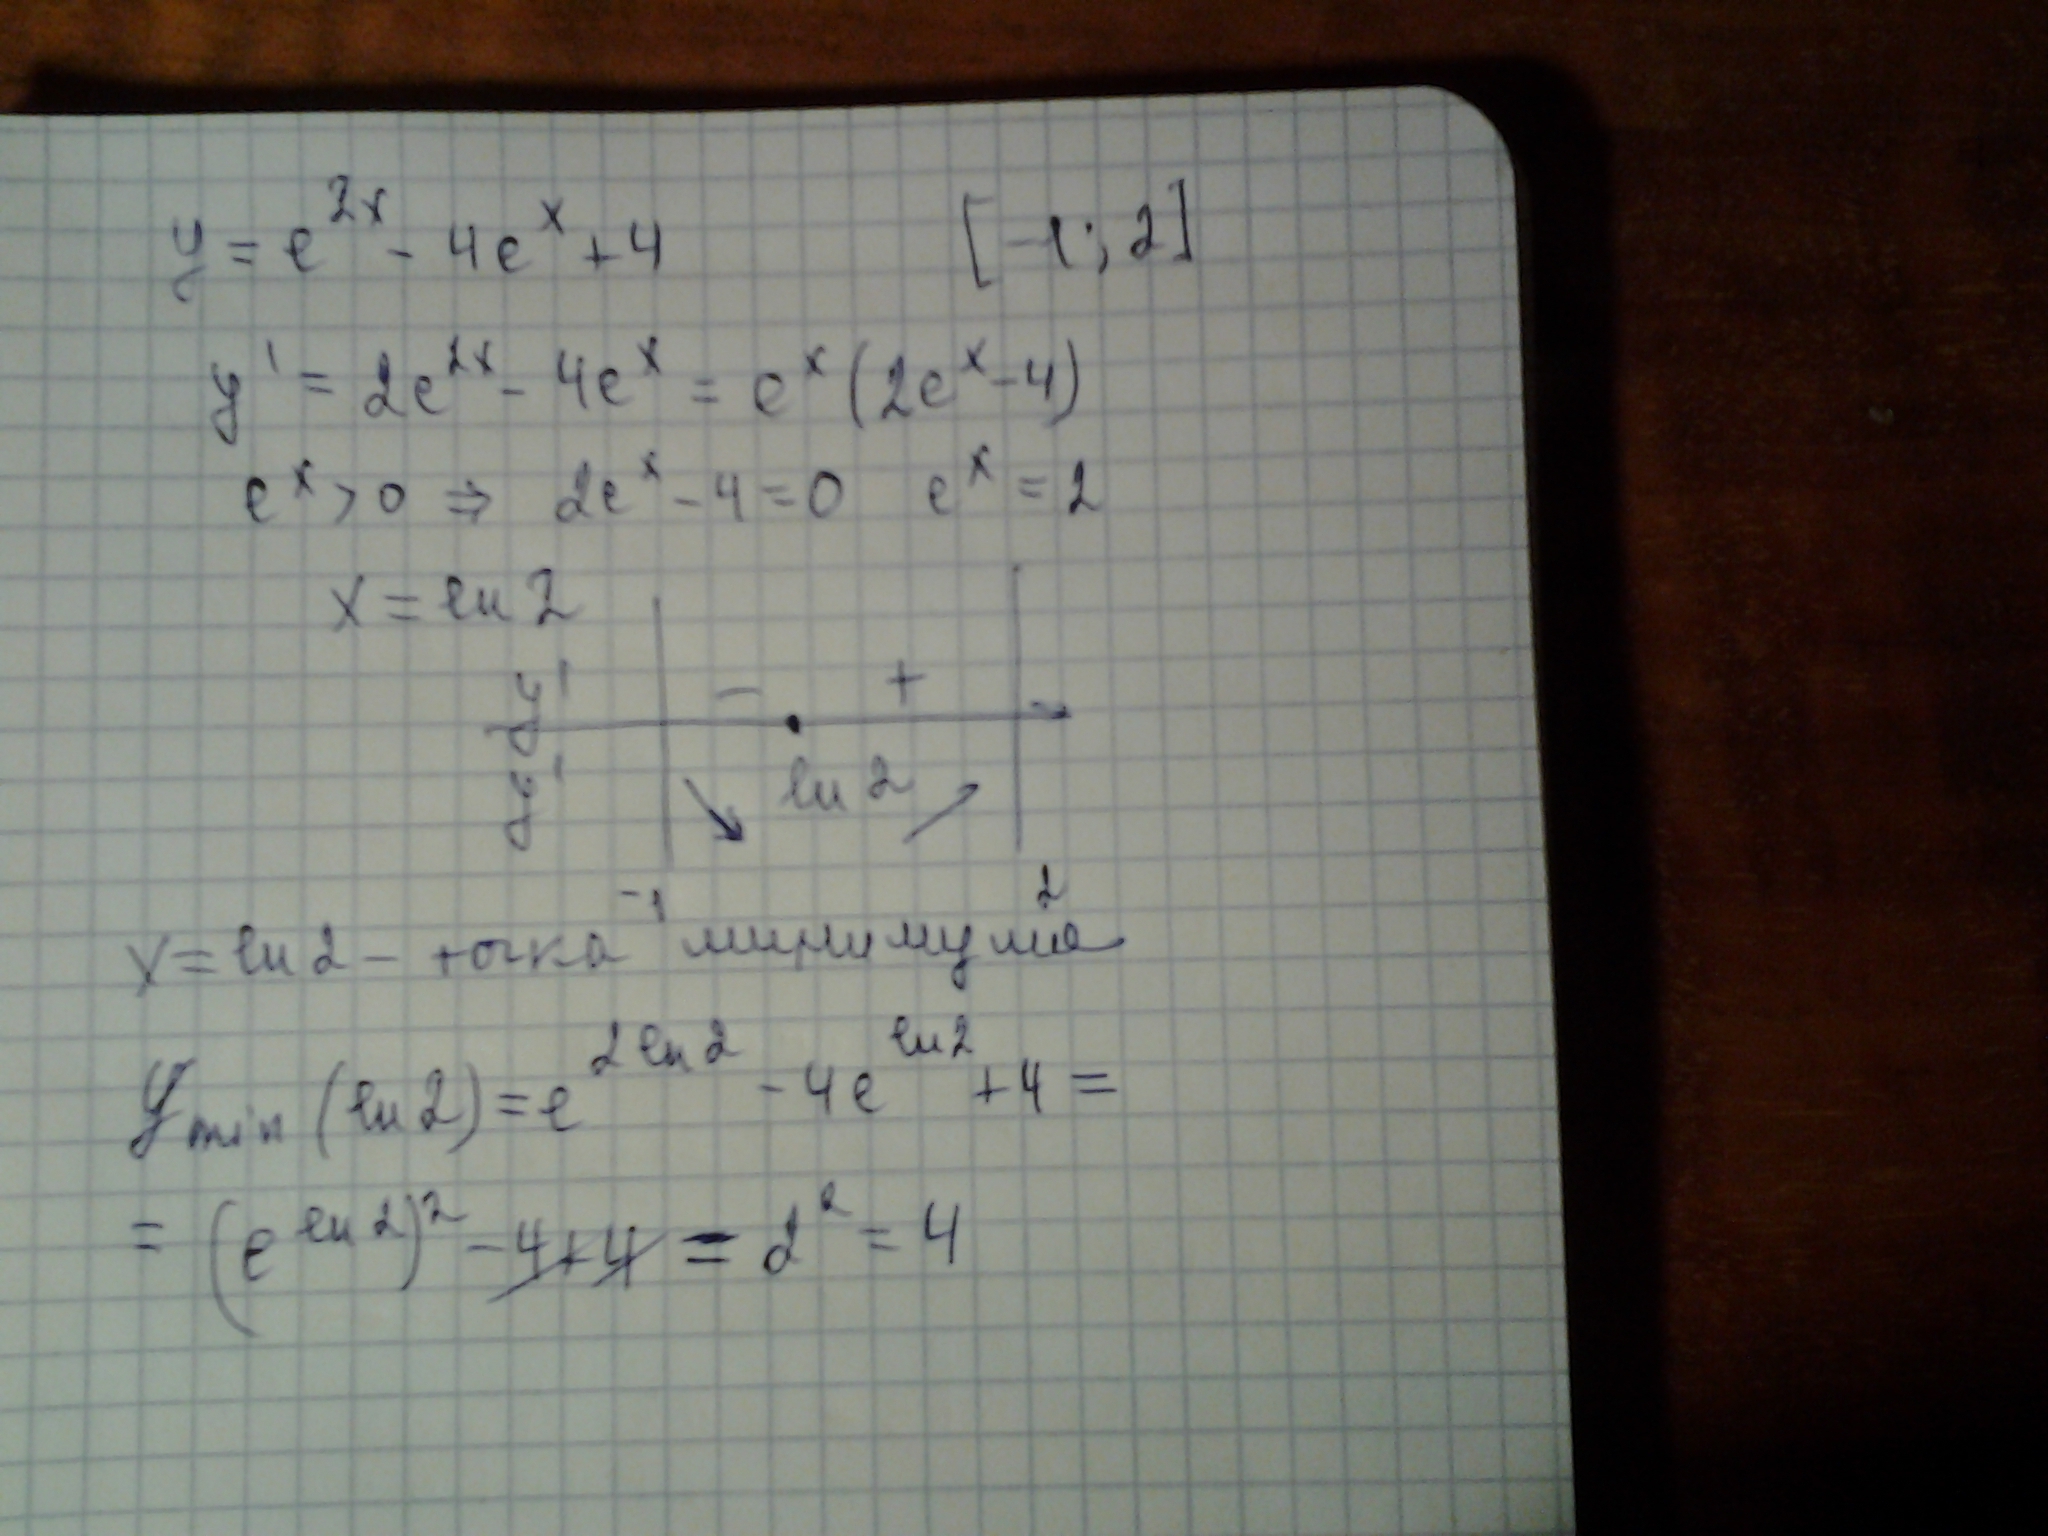 y = e^{2x} - 4e^x + 4 [-1; 2]
y' = 2e^{2x} - 4e^x = e^x (2e^x - 4)
e^x > 0 ⇒ 2e^x - 4 = 0 e^x = 2
x = ln 2
y' - +
y ln 2
-1 2
x = ln 2 - точка минимума
y_{min} (ln 2) = e^{2 ln 2} - 4e^{ln 2} + 4 =
= (e^{ln 2})^2 - 4 + 4 = 2^2 = 4